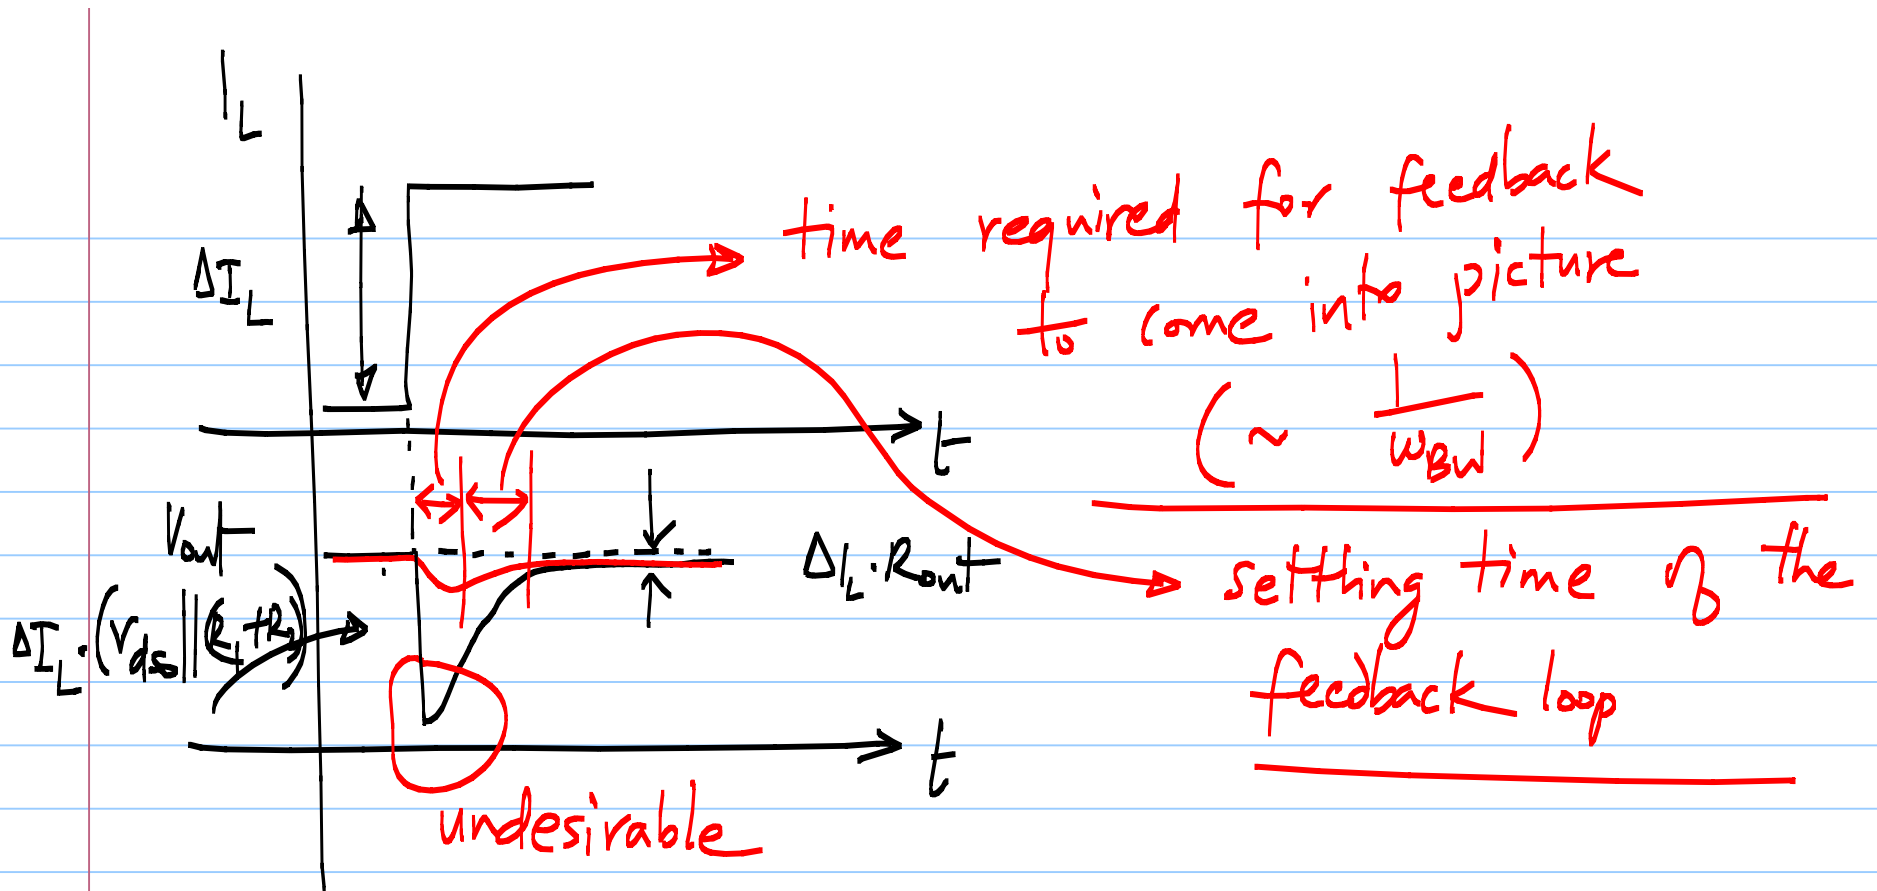 I_L
ΔI_L
time required for feedback
to come into picture
(~ 1/ω_BW)
t
V_out
Δ I_L . R_out
settling time of the
feedback loop
ΔI_L . (r_ds || (R_1+R_2))
t
undesirable